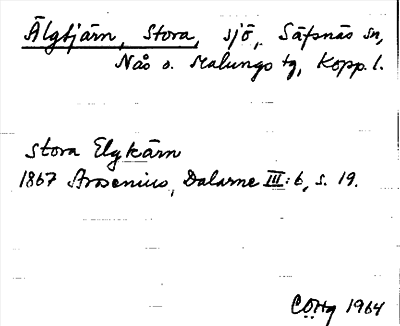 Älgtjärn, Stora, sjö, Säfsnäs sn,
Nås o. Malungs tg, Kopp. l.
Stora Elgkärn
1867 Arosenius, Dalarne III:6, s. 19.
COHg 1964